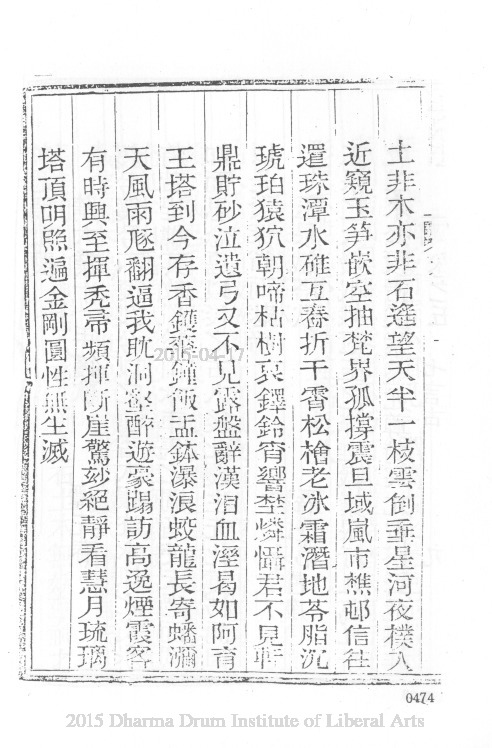 土非木亦非石遙望天半一枝雲倒垂星河夜撲人
近窺玉笋嵌空抽梵界孤撐震旦域嵐市樵邨信往
還珠潭水碓互舂折干霄松檜老冰霜潛地苓脂沉
琥珀猿狖朝啼枯樹哀鐸鈴宵響埜燐懾君不見軒
鼎貯砂泣遺弓又不見露盤辭漢泪血溼曷如阿育
王塔到今存香鑊蔘鐘飯盂鉢瀑浪蛟龍長寄蟠瀰
天風雨恣翻逼我耽洞壑醉遊豪蹋訪高逸煙霞客
有時興至揮禿帚頻揮斷崖驚妙絕靜看慧月琉璃
塔頂明照遍金剛圓性無生滅
0474
2015-04-17
2015 Dharma Drum Institute of Liberal Arts